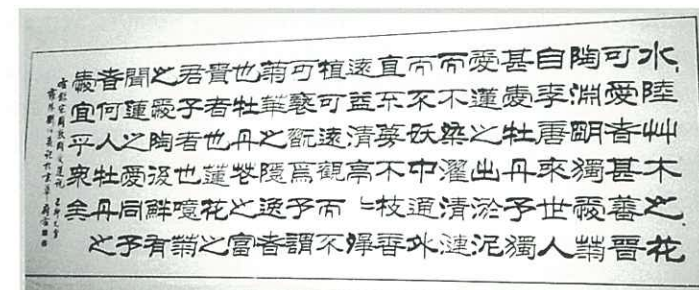 水陸艸木之花
可愛者甚蕃晉
陶淵明獨愛菊
自李唐來世人
甚愛牡丹予獨
愛蓮之出淤泥
而不染濯清漣
而不妖中通外
直不蔓不枝香
遠益清亭〻淨
植可遠觀而不
可褻翫焉予謂
菊華之隱逸者
也牡丹之花富
貴者也蓮花之
君子者也噫菊
之愛陶後鮮有
聞蓮之愛同予
者何人牡丹之
愛宜乎衆矣